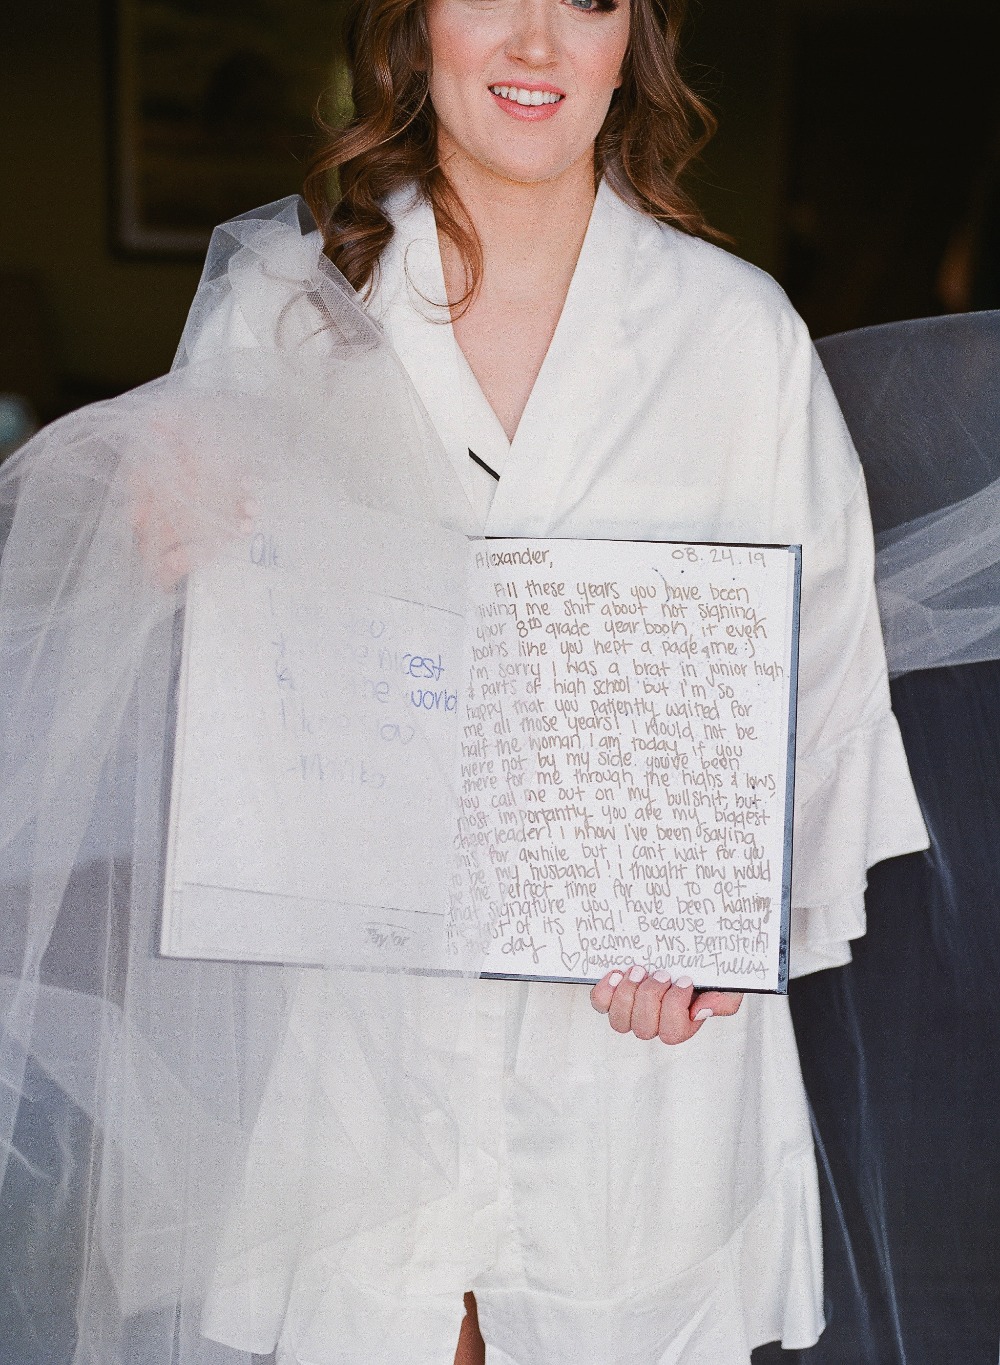 nicest
the world
Taylor
Alexander,
08.24.19
All these years you have been
giving me shit about not signing
your 8th grade yearbook, it even
looks like you kept a page 4 me :)
I'm sorry I was a brat in junior high
& parts of high school but I'm so
happy that you patiently waited for
me all those years! I would not be
half the woman I am today if you
were not by my side. you've been
there for me through the highs & lows
you call me out on my bullshit, but
most importantly you are my biggest
cheerleader! I know I've been saying
this for awhile but I can't wait for you
to be my husband! I thought now would
be the perfect time for you to get
that signature you have been wanting
the last of its kind! Because today
is the day I become Mrs. Bernstein!
♡ Jessica Lauren